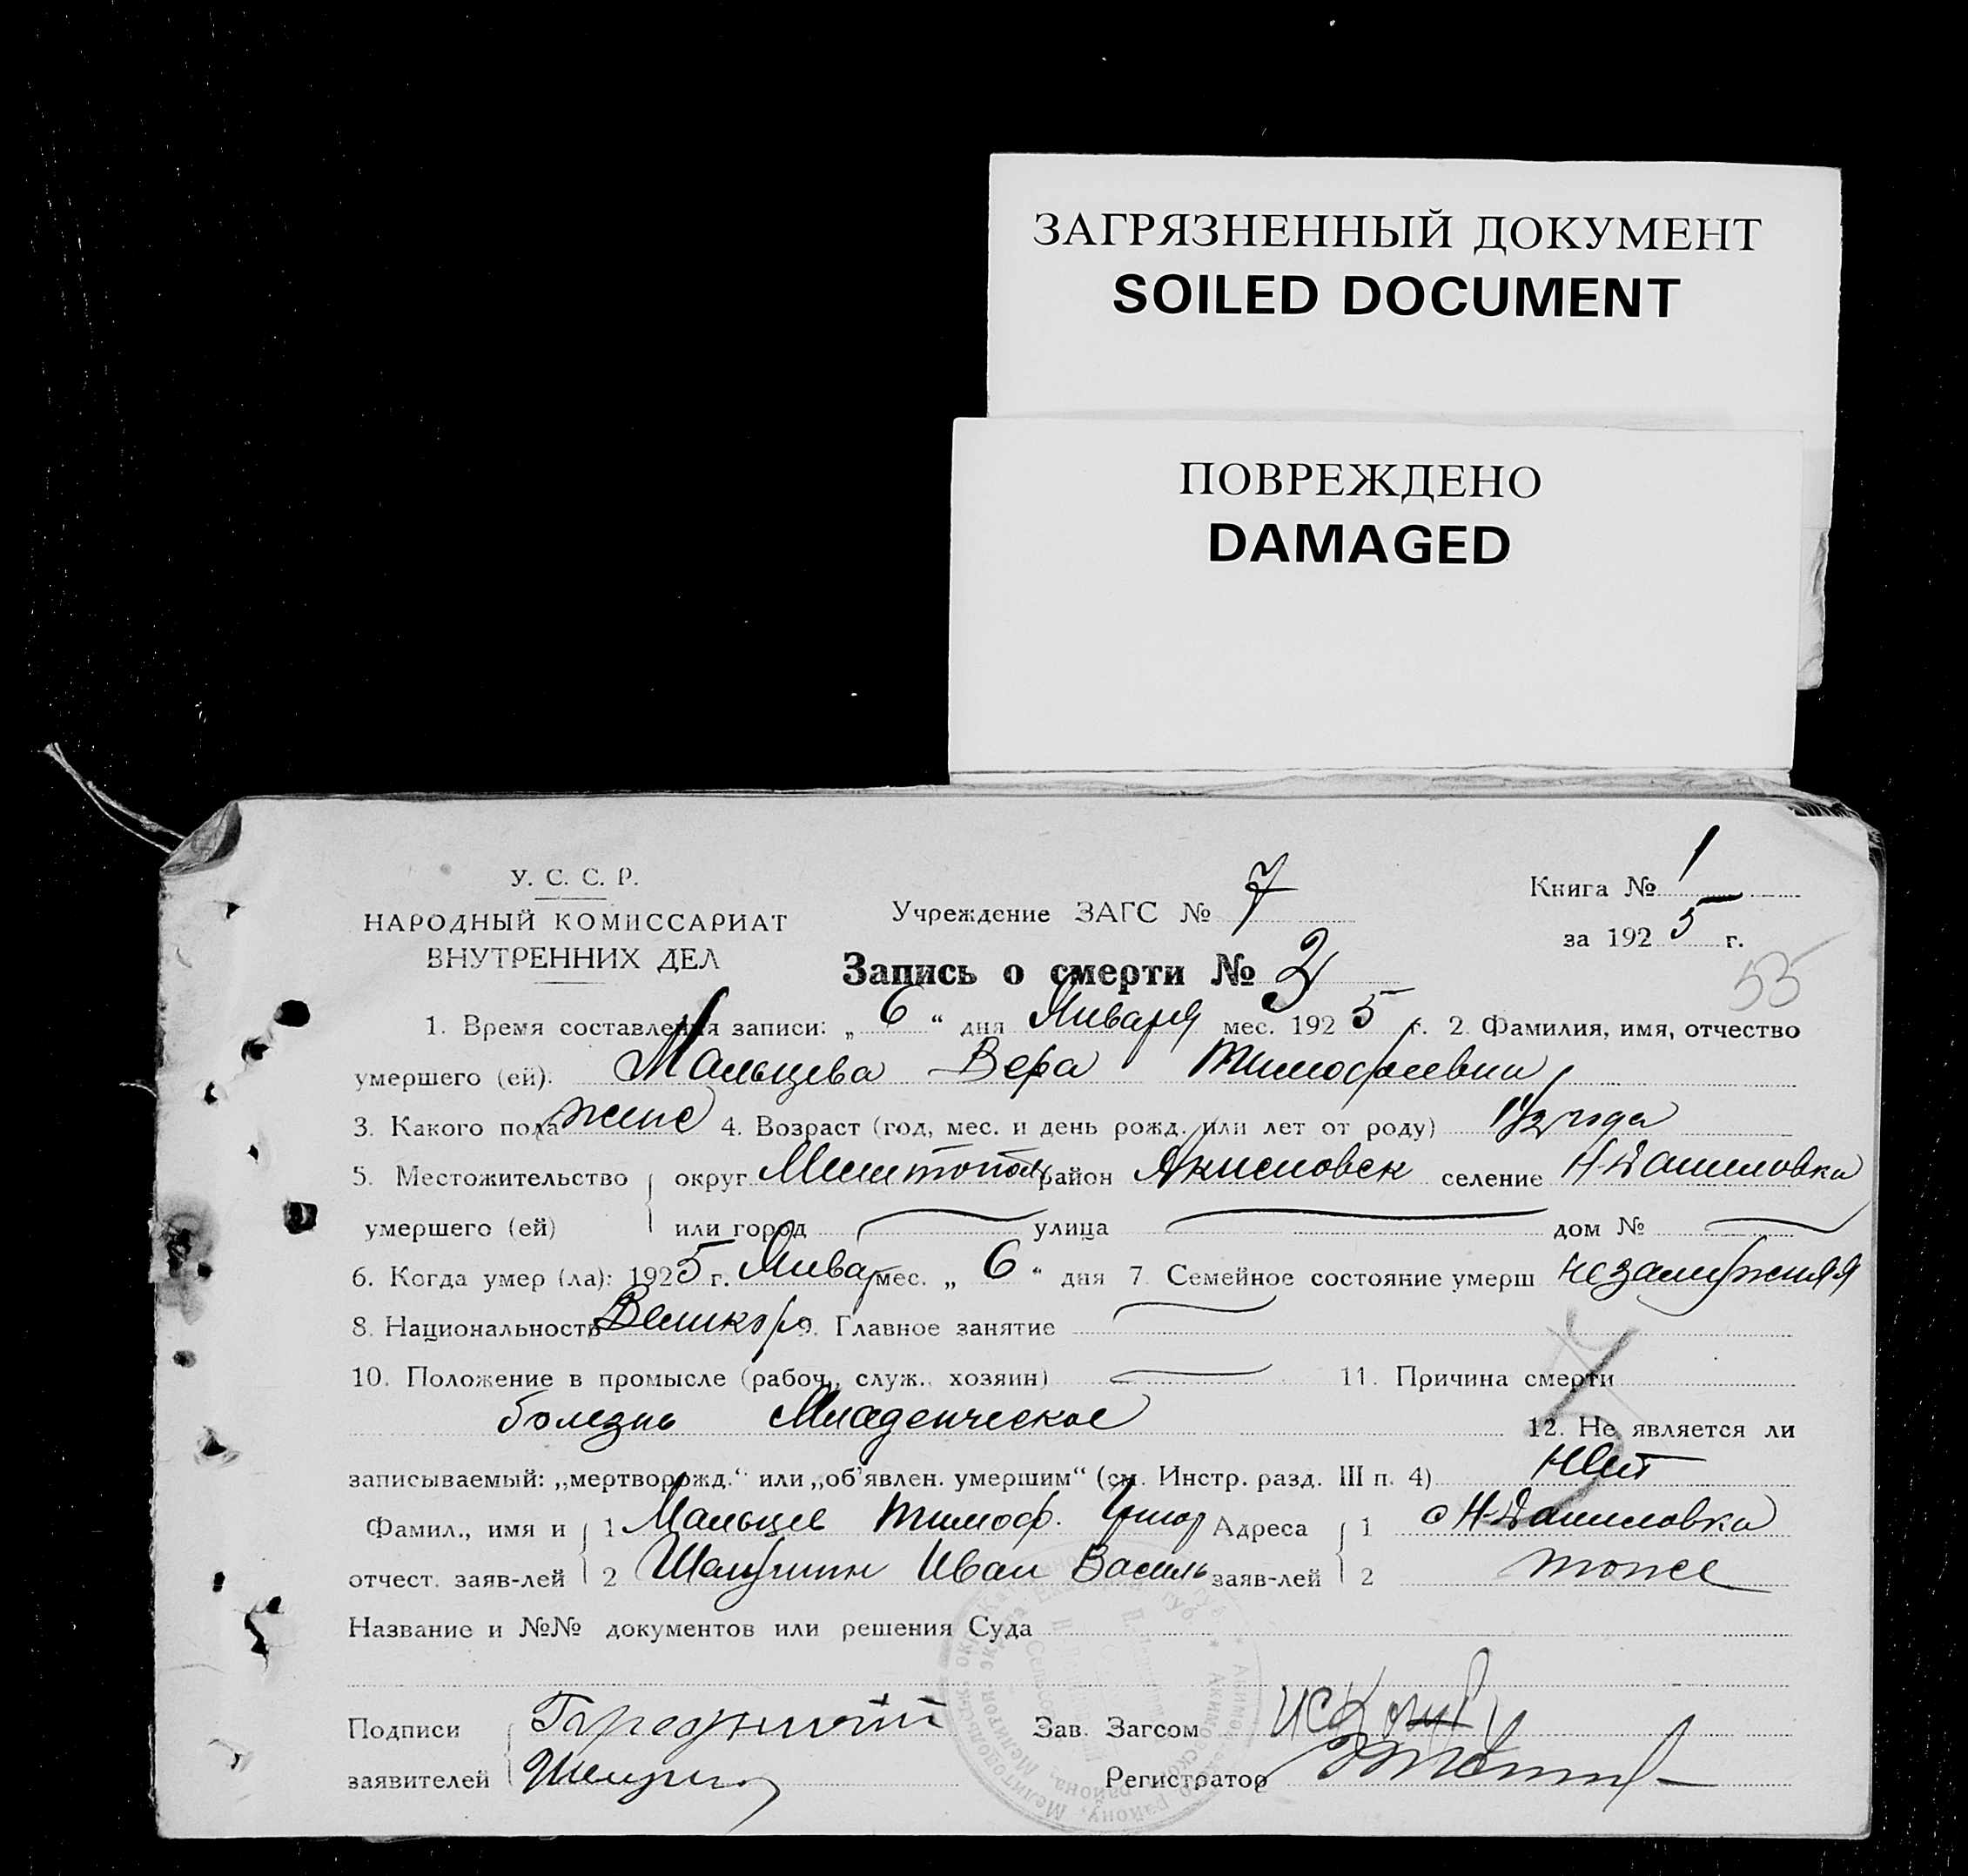 ЗАГРЯЗНЕННЫЙ ДОКУМЕНТ
SOILED DOCUMENT
ПОВРЕЖДЕНО
DAMAGED
У. С. С. Р.
НАРОДНЫЙ КОМИССАРИАТ
ВНУТРЕННИХ ДЕЛ
Учреждение ЗАГС № 7
Книга № 1
за 1925 г.
Запись о смерти № 2
55
1. Время составления записи: „ 6 “ дня Января мес. 1925 г. 2. Фамилия, имя, отчество
умершего (ей). Мальцева Вера Тимофеевна
3. Какого пола женс 4. Возраст (год, мес. и день рожд. или лет от роду) 1 1/2 года
5. Местожительство округ Мелитопол район Акимовск селение Н-Даниловка
умершего (ей) или город улица дом №
6. Когда умер (ла): 1925 г. Январ мес. „ 6 “ дня 7. Семейное состояние умерш незамужняя
8. Национальность Великор 9. Главное занятие
10. Положение в промысле (рабоч., служ., хозяин) 11. Причина смерти
болезнь Младенческое
12. Не является ли
записываемый: „мертворожд.“ или „об'явлен. умершим“ (см. Инстр. разд. III п. 4) Нет
Фамил., имя и 1 Мальцев Тимоф. Адреса 1 с Н-Даниловка
отчест. заяв-лей 2 Иван Василь заяв-лей 2 тоже
Название и №№ документов или решения Суда
Подписи
Зав. Загсом
заявителей
Регистратор